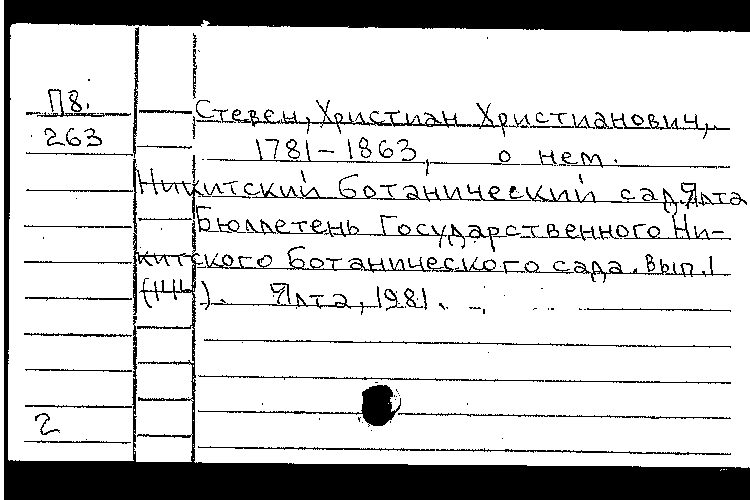 П8.
263
Стевен, Христиан Христианович,
1781–1863, о нем.
Никитский ботанический сад. Ялта
Бюллетень Государственного Ни-
китского ботанического сада. Вып. 1
(144). Ялта, 1981.
2